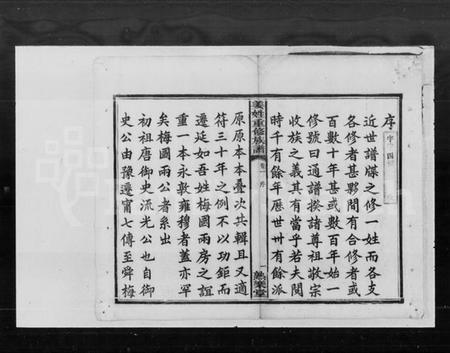 序
字四
近世譜牒之修一姓而各支
各修者甚夥間有合修者或
百數十年甚或數百年始一
修號曰通譜揆諸尊祖敬宗
收族之義其有當乎若夫閱
時千有餘年歷世卅有餘派
姜姓重修族譜
卷一序
一
熟業堂
原原本本疊次共輯且又適
符三十年之例不以功鉅而
遷延如吾姓梅國兩房之誼
重一本永敦雍穆者蓋亦罕
矣梅國兩公者系出
初祖唐御史流光公也自御
史公由豫遷甯七傳至舜梅